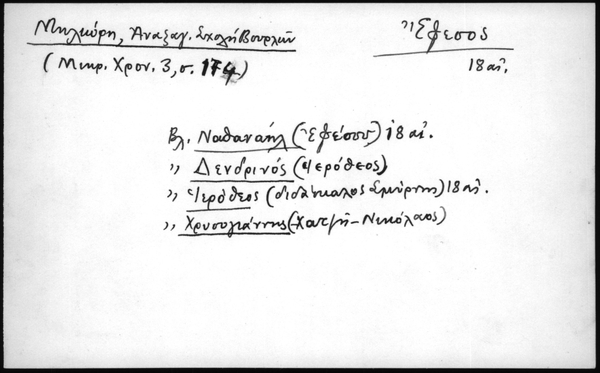 Μηλιώρη, Ἀναξαγ. Σχολὴ Βουρλῶν
(Μικρ. Χρον. 3, σ. 174)
Ἔφεσος
18 αἰ.
Βλ. Ναθαναὴλ (Ἐφέσου) 18 αἰ.
” Δενδρινός (Ἱερόθεος)
” Ἱερόθεος (διδάσκαλος Σμύρνης) 18 αἰ.
” Χρυσογιάννης (Χατζῆ-Νικόλαος)